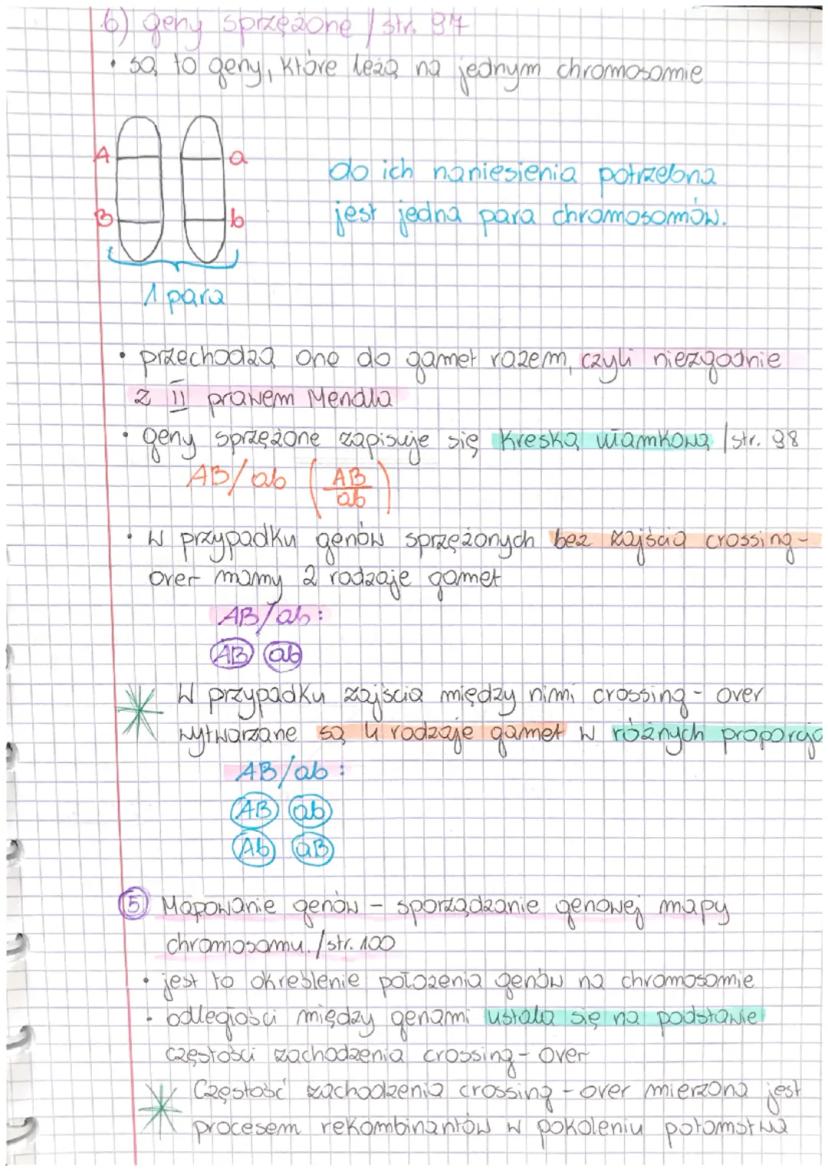 6) geny sprzężone / str. 97
• są to geny, które leżą na jednym chromosomie
A a
B b
do ich naniesienia potrzebna
jest jedna para chromosomów.
1 para
• przechodzą one do gamet razem, czyli niezgodnie
z II prawem Mendla
• geny sprzężone zapisuje się kreską ułamkową /str. 98
AB/ab (AB/ab)
• W przypadku genów sprzężonych bez zajścia crossing-
over mamy 2 rodzaje gamet
AB/ab:
AB ab
W przypadku zajścia między nimi crossing-over
wytwarzane są 4 rodzaje gamet w różnych proporcja
AB/ab:
AB ab
Ab aB
5 Mapowanie genów - sporządzanie genowej mapy
chromosomu. /str. 100
• jest to określenie położenia genów na chromosomie
• odległości między genami ustala się na podstawie
częstości zachodzenia crossing-over
Częstość zachodzenia crossing-over mierzona jest
procesem rekombinantów w pokoleniu potomstwa